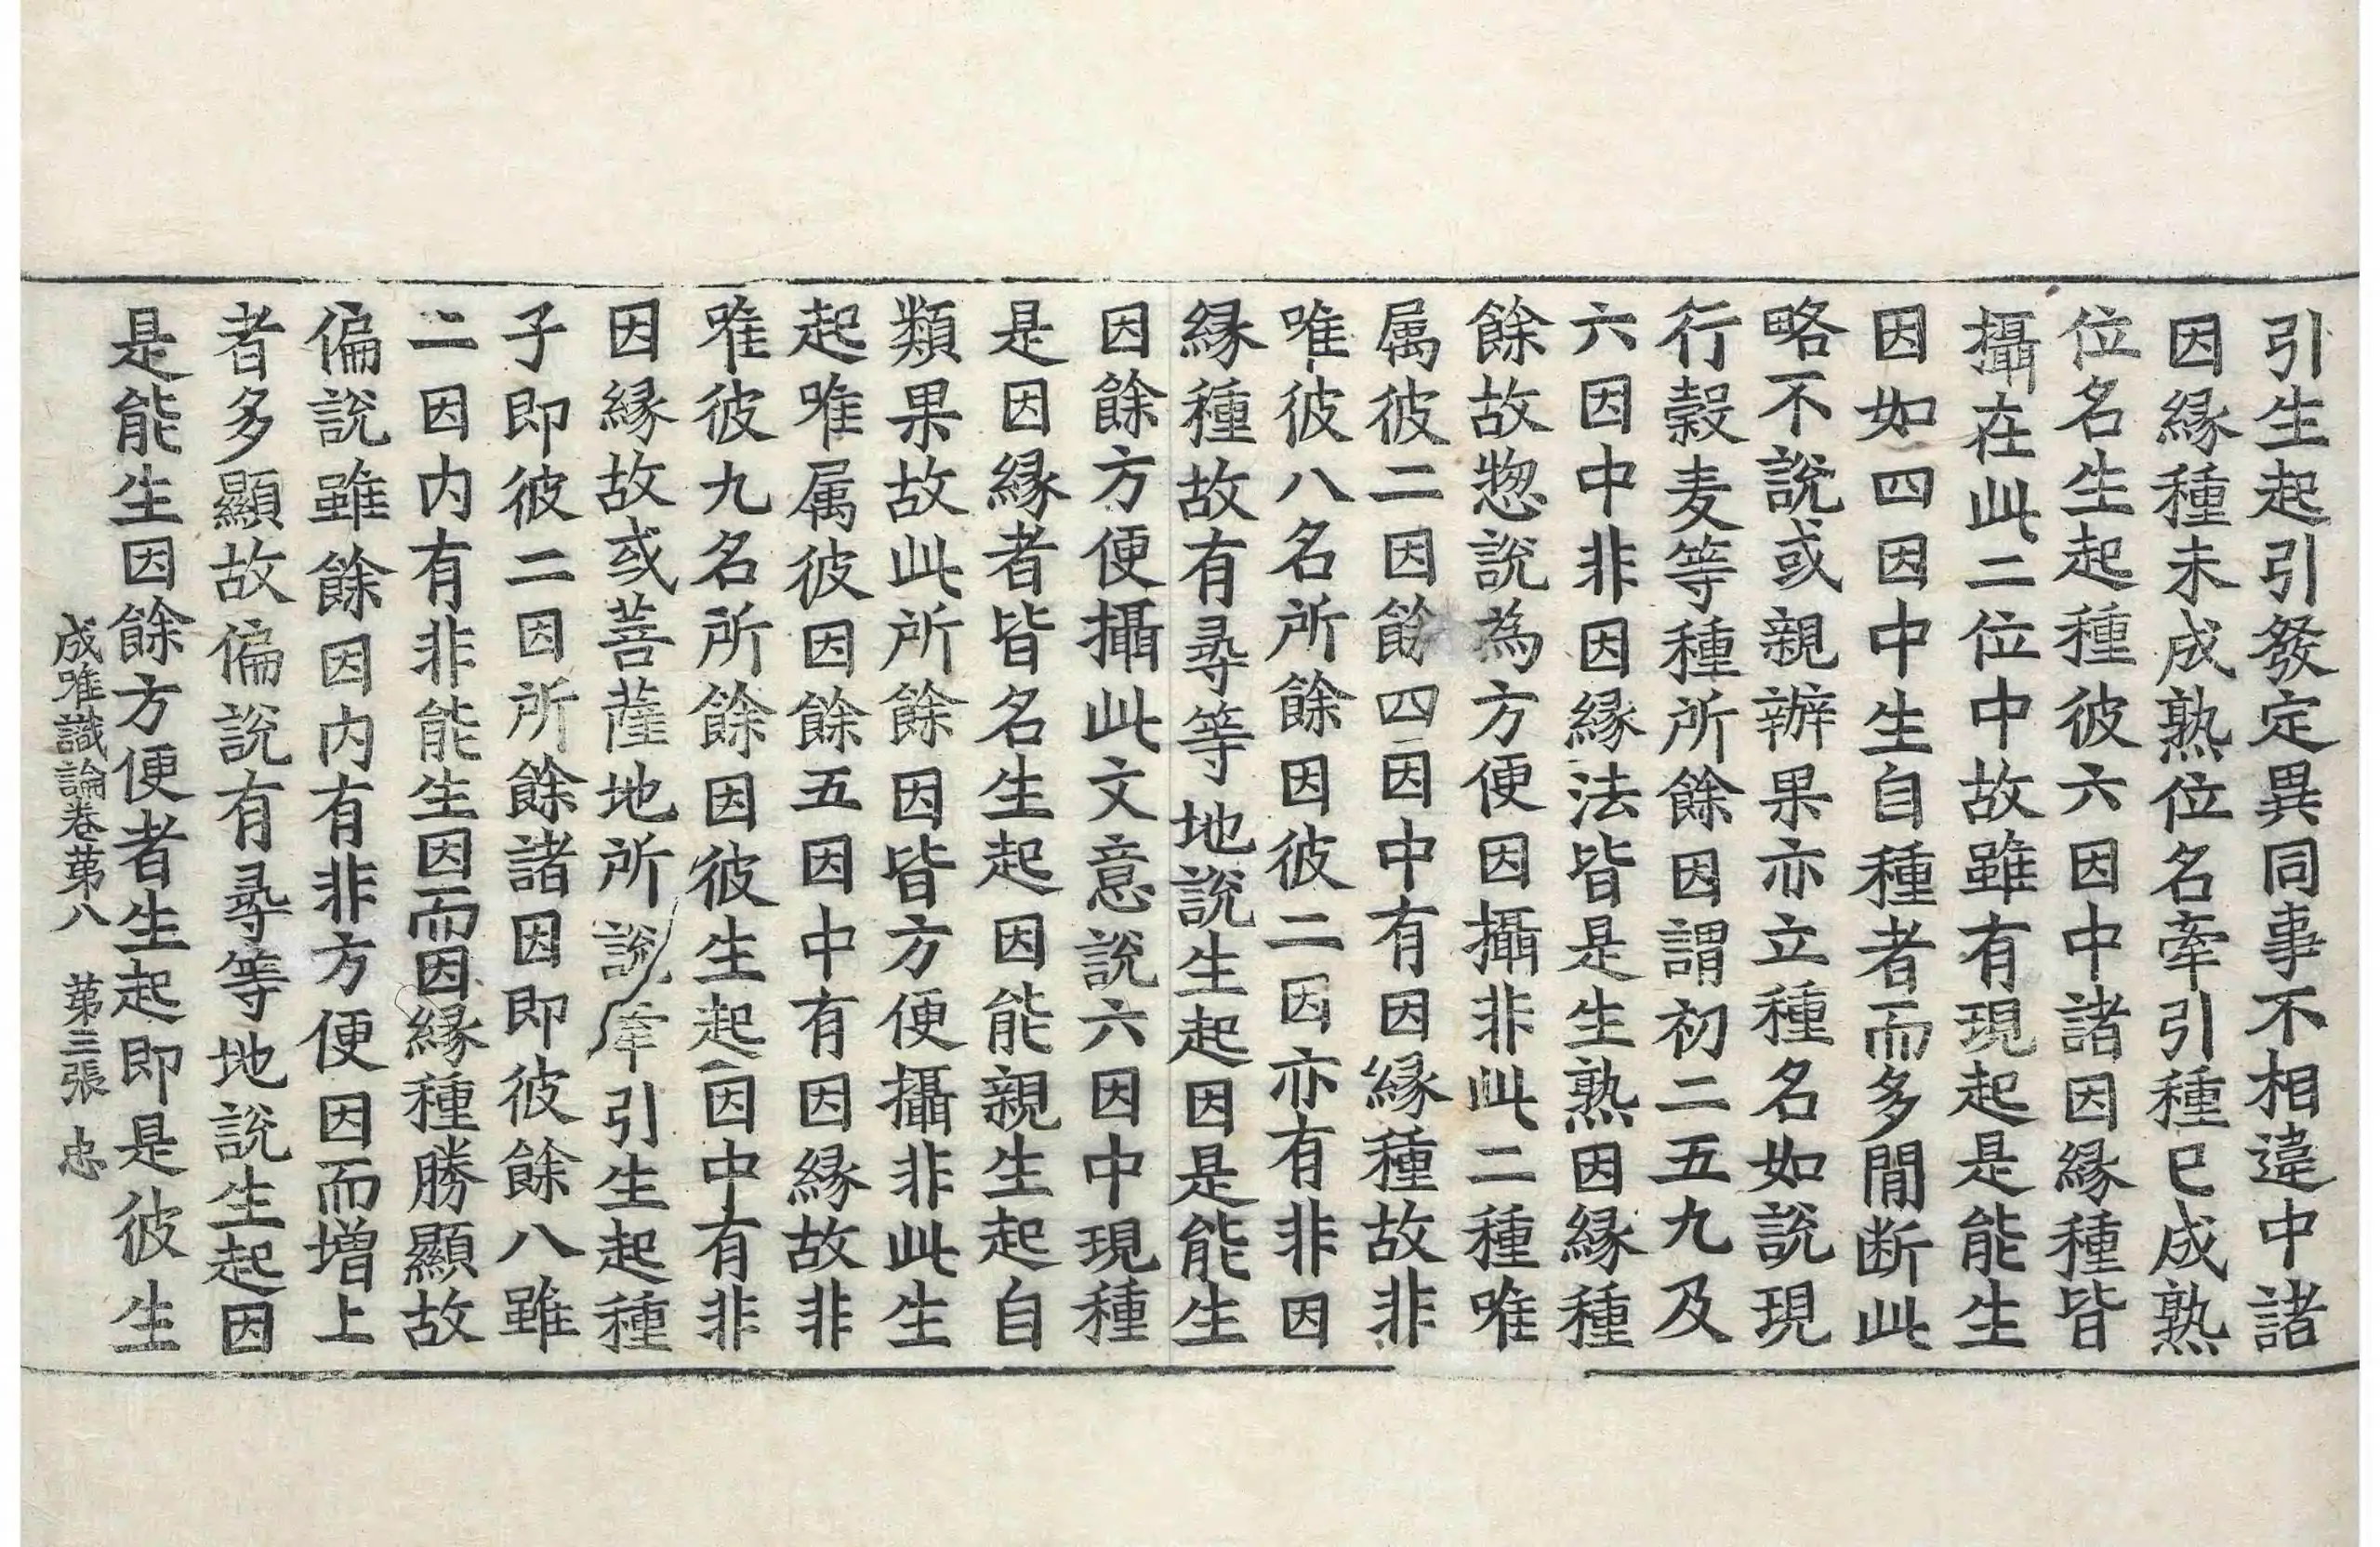 引生起引發定異同事不相違中諸
因縁種未成熟位名牽引種已成熟
位名生起種彼六因中諸因縁種皆
攝在此二位中故雖有現起是能生
因如四因中生自種者而多間断此
略不説或親辦果亦立種名如説現
行穀麦等種所餘因謂初二五九及
六因中非因縁法皆是生熟因縁種
餘故惣説為方便因攝非此二種唯
属彼二因餘四因中有因縁種故非
唯彼八名所餘因彼二因亦有非因
縁種故有尋等地説生起因是能生
因餘方便攝此文意説六因中現種
是因縁者皆名生起因能親生起自
類果故此所餘因皆方便攝非此生
起唯属彼因餘五因中有因縁故非
唯彼九名所餘因彼生起因中有非
因縁故或菩薩地所説牽引生起種
子即彼二因所餘諸因即彼餘八雖
二因内有非能生因而因縁種勝顯故
偏説雖餘因内有非方便因而増上
者多顯故偏説有尋等地説生起因
是能生因餘方便者生起即是彼生
成唯識論卷苐八 苐三張 忠